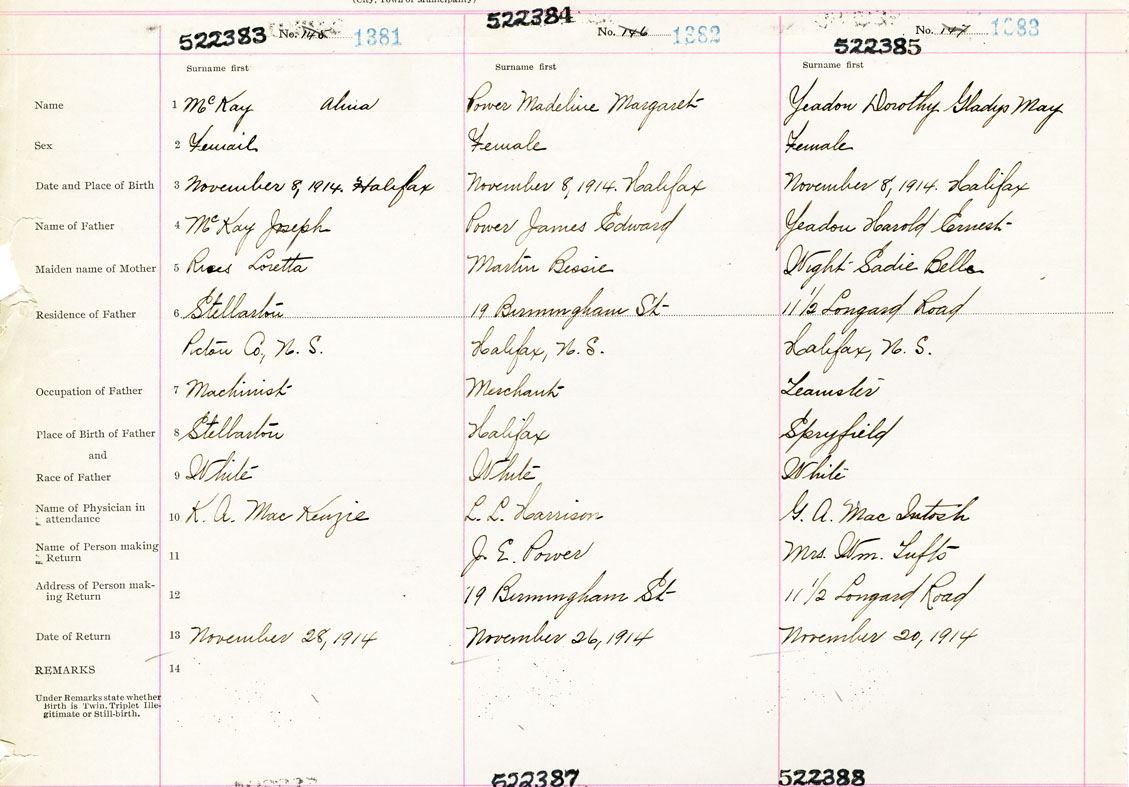 (City, Town or Municipality)
522383 No. 145 1381
522384 No. 146 1382
522385 No. 147 1383
Surname first Surname first Surname first
Name 1 McKay Alma Power Madeline Margaret Yeadon Dorothy Gladys May
Sex 2 Femail Female Female
Date and Place of Birth 3 November 8, 1914. Halifax November 8, 1914. Halifax November 8, 1914. Halifax
Name of Father 4 McKay Joseph Power James Edward Yeadon Harold Ernest
Maiden name of Mother 5 Loretta Martin Bessie Wight Sadie Belle
Residence of Father 6 Stellarton 19 Birmingham St 11 1/2 Longard Road
Pictou Co, N. S. Halifax, N. S. Halifax, N. S.
Occupation of Father 7 Machinist Merchant Teamster
Place of Birth of Father 8 Stellarton Halifax Spryfield
and
Race of Father 9 White White White
Name of Physician in
attendance 10 K. A. Mac Kenzie L. L. Harrison G. A. Mac Intosh
Name of Person making
Return 11 J. E. Power Mrs. Wm. Tufts
Address of Person mak-
ing Return 12 19 Birmingham St 11 1/2 Longard Road
Date of Return 13 November 28, 1914 November 26, 1914 November 20, 1914
REMARKS 14
Under Remarks state whether
Birth is Twin, Triplet Ille-
gitimate or Still-birth.
522387 522388